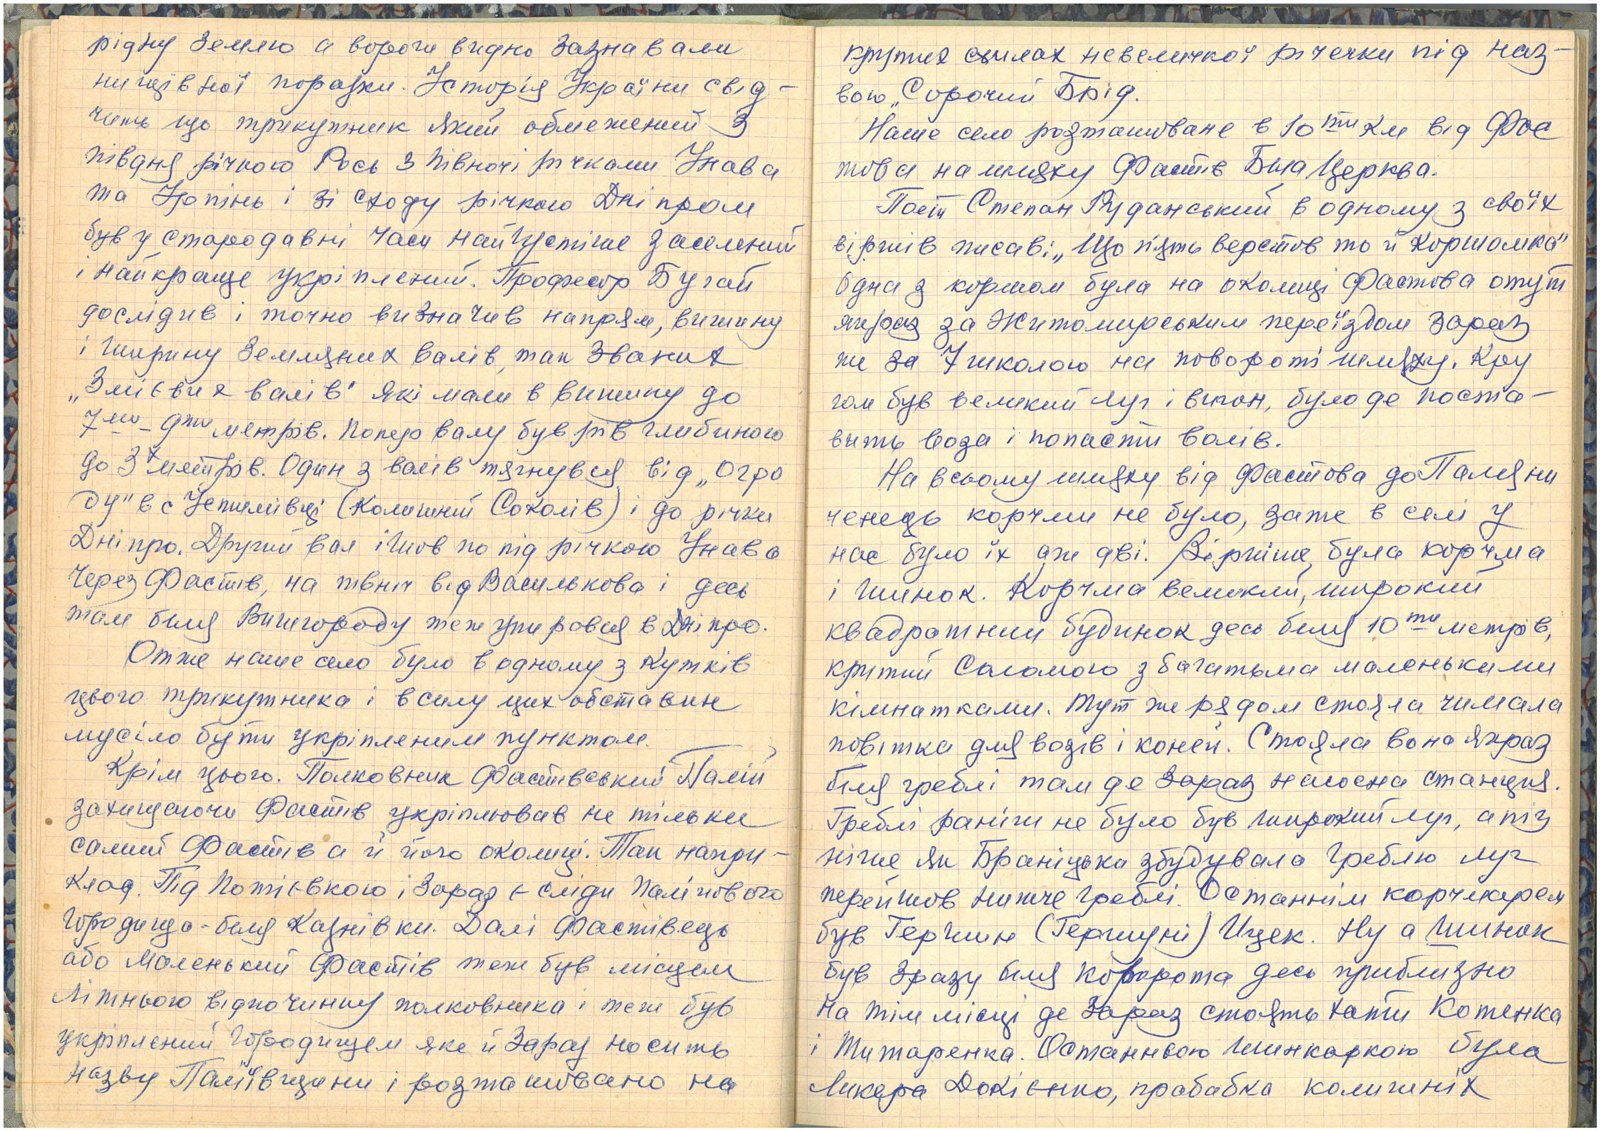 рідну землю а вороги видно зазнавали
нищівної поразки. Історія України свід-
чить що трикутник який обмежений з
півдня річкою Рось з півночі річками Унава
та Ірпінь і зі сходу річкою Дніпром
був у стародавні часи найгустіше заселений
і найкраще укріплений. Професор Бугай
дослідив і точно визначив напрям, вишину
і ширину земляних валів, так званих
„Змієвих валів" які мали в вишину до
7ми-9ти метрів. Попід валу був рів глибиною
до 3х метрів. Один з валів тягнувся від „Огро
ду" в с Устимівці (Колишній Соколів) і до річки
Дніпро. Другий вал ішов по під річкою Унава
через Фастів, на північ від Василькова і десь
там біля Вишгороду теж упирався в Дніпро.
Отже наше село було в одному з кутків
цього трикутника і в силу цих обставин
мусіло бути укріпленим пунктом.
Крім цього. Полковник Фастівський Палій
захищаючи Фастів укріплював не тільки
самий Фастів а й його околиці. Так напри-
клад. Під Потієвкою і зараз є сліди Палієвого
городища - біля Казнівки. Далі Фастівець
або Маленький Фастів теж був місцем
літнього відпочинку полковника і теж був
укріплений городищем яке й зараз носить
назву Паліївщини і розташовано на
крутих схилах невеличкої річечки під наз-
вою „Сорочий Брід.
Наше село розташоване в 10ти км від Фас
това на шляху Фастів Біла Церква.
Поет Степан Руданський в одному з своїх
віршів писав: „Що п'ять верстов то й коршомка"
Одна з коршом була на околиці Фастова отут
якраз за Житомирським переїздом зараз
же за 7 школою на повороті шляху. Кру
гом був великий луг і вигон, було де поста-
вить воза і попасти волів.
На всьому шляху від Фастова до Паляни
ченець корчми не було, зате в селі у
нас було їх аж дві. Вірніше, була корчма
і шинок. Корчма великий, широкий
квадратний будинок десь біля 10ти метрів,
критий соломою з багатьма маленькими
кімнатками. Тут же рядом стояла чимала
повітка для возів і коней. Стояла вона якраз
біля греблі там де зараз насосна станція.
Греблі раніш не було був широкий луг, а піз
ніше як Браніцька збудувала греблю луг
перейшов нижче греблі. Останнім корчмарем
був Гершин (Гершуні) Іцек. Ну а шинок
був зразу біля коворота десь приблизно
на тім місці де зараз стоять хати Котенка
і Титаренка. Останньою шинкаркою була
Ликера Докієнко, прабабка колишніх